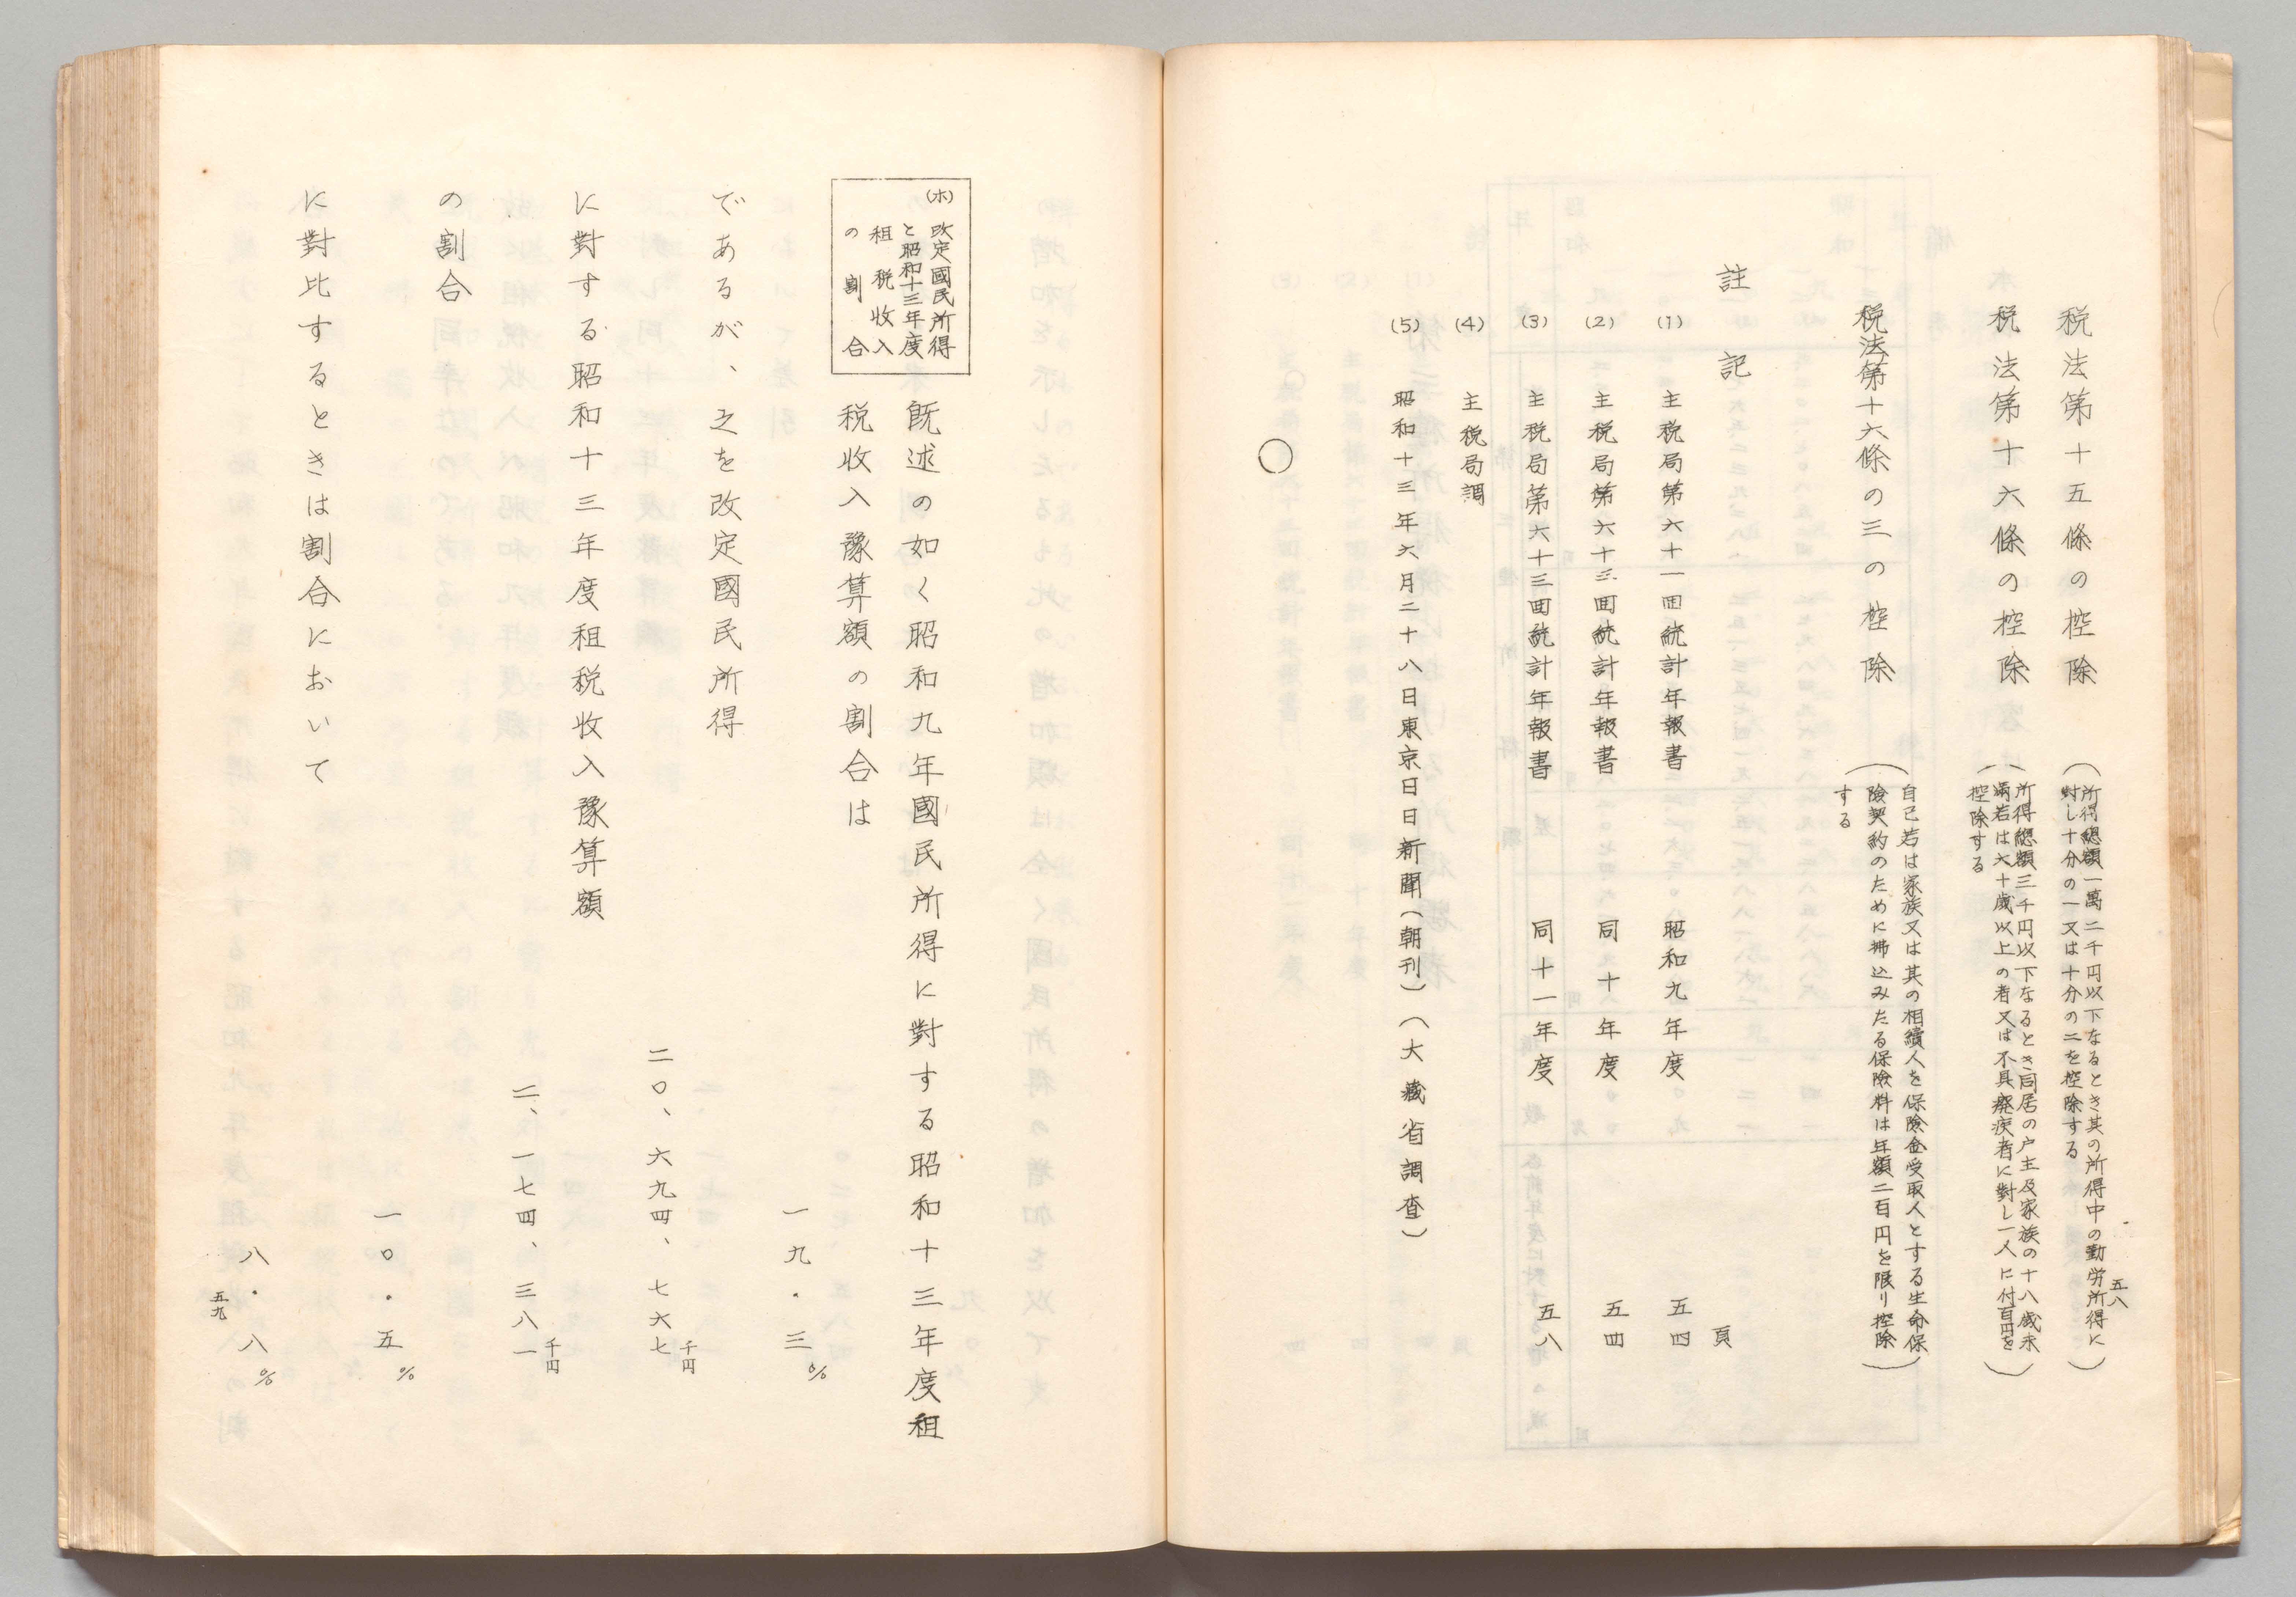 五八
税法第十五條の控除
(所得總額一萬二千円以下なるとき其の所得中の勤労所得に
對し十分の一又は十分の二を控除する)
税法第十六條の控除
(所得總額三千円以下なるとき同居の戸主及家族の十八歳未
満若は六十歳以上の者又は不具癈疾者に對し一人に付百円を
控除する)
税法第十六條の三の控除
(自己若は家族又は其の相續人を保險金受取人とする生命保
險契約のために拂込みたる保險料は年額二百円を限り控除
する)
註記
頁
(1) 主税局第六十一囬統計年報書 昭和九年度 五四
(2) 主税局第六十二囬統計年報書 同十年度 五四
(3) 主税局第六十三囬統計年報書 同十一年度 五八
(4) 主税局調
(5) 昭和十三年六月二十八日東京日日新聞(朝刊)(大藏省調査)
○
(ホ) 改定國民所得
と昭和十三年度
租税收入
の割合
既述の如く昭和九年國民所得に對する昭和十三年度租
税收入豫算額の割合は
一九・三%
であるが、之を改定國民所得
二〇、六九四、七六七千円
に對する昭和十三年度租税收入豫算額
二、一七四、三八一千円
の割合
一〇・五%
に對比するときは割合において
八・八%
五九